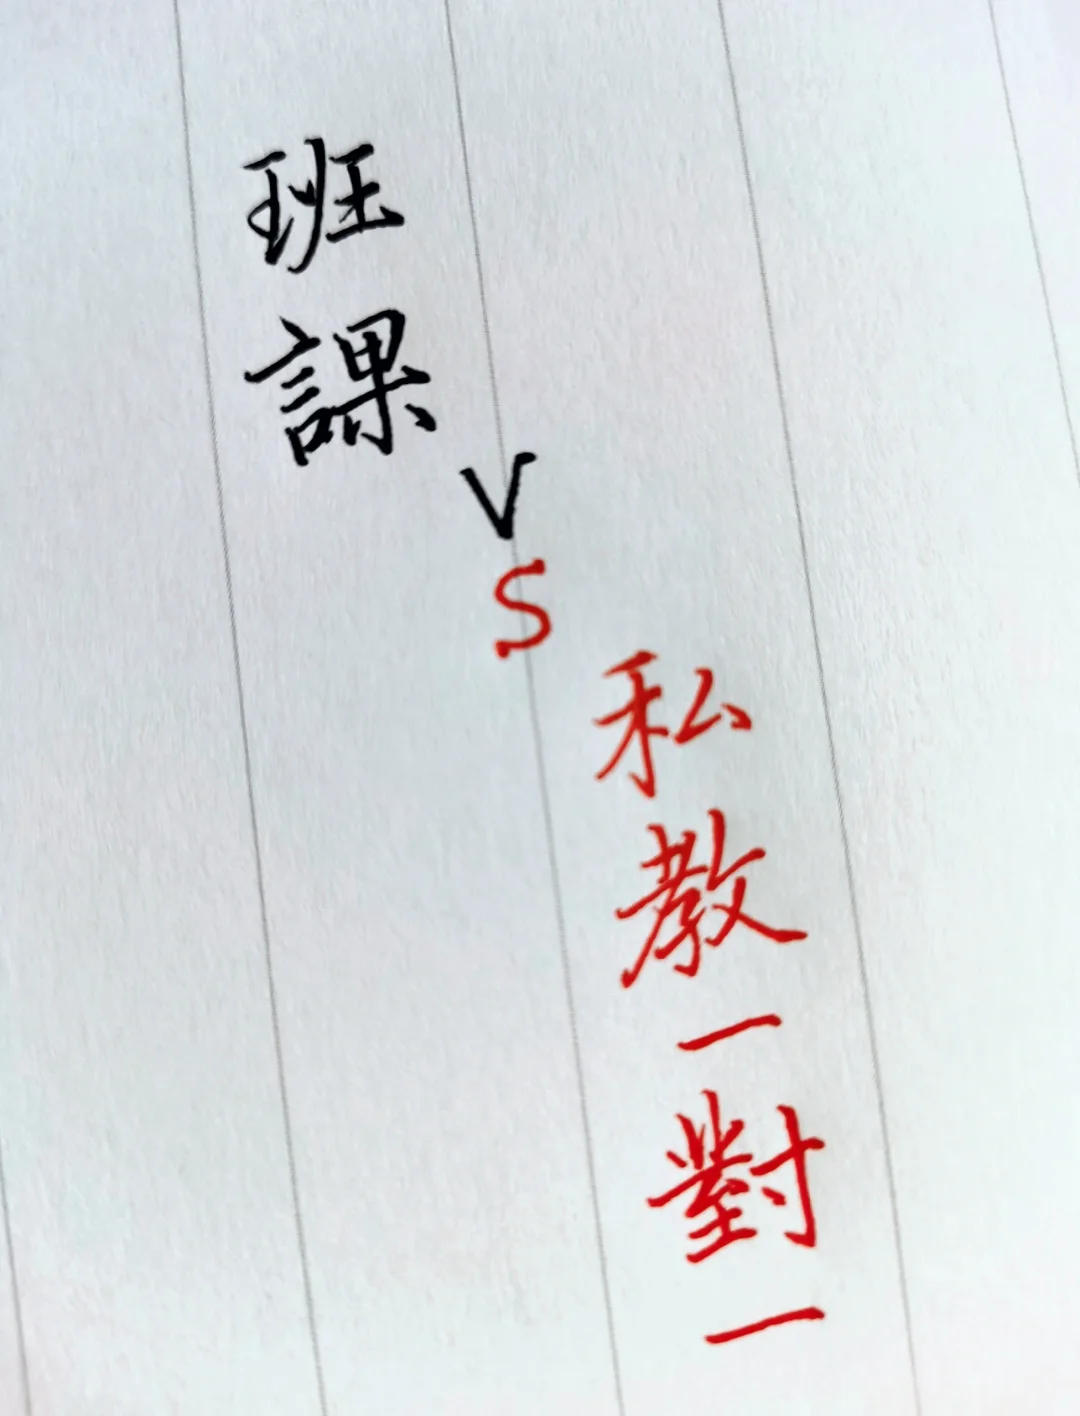 班課
VS
私教一對一